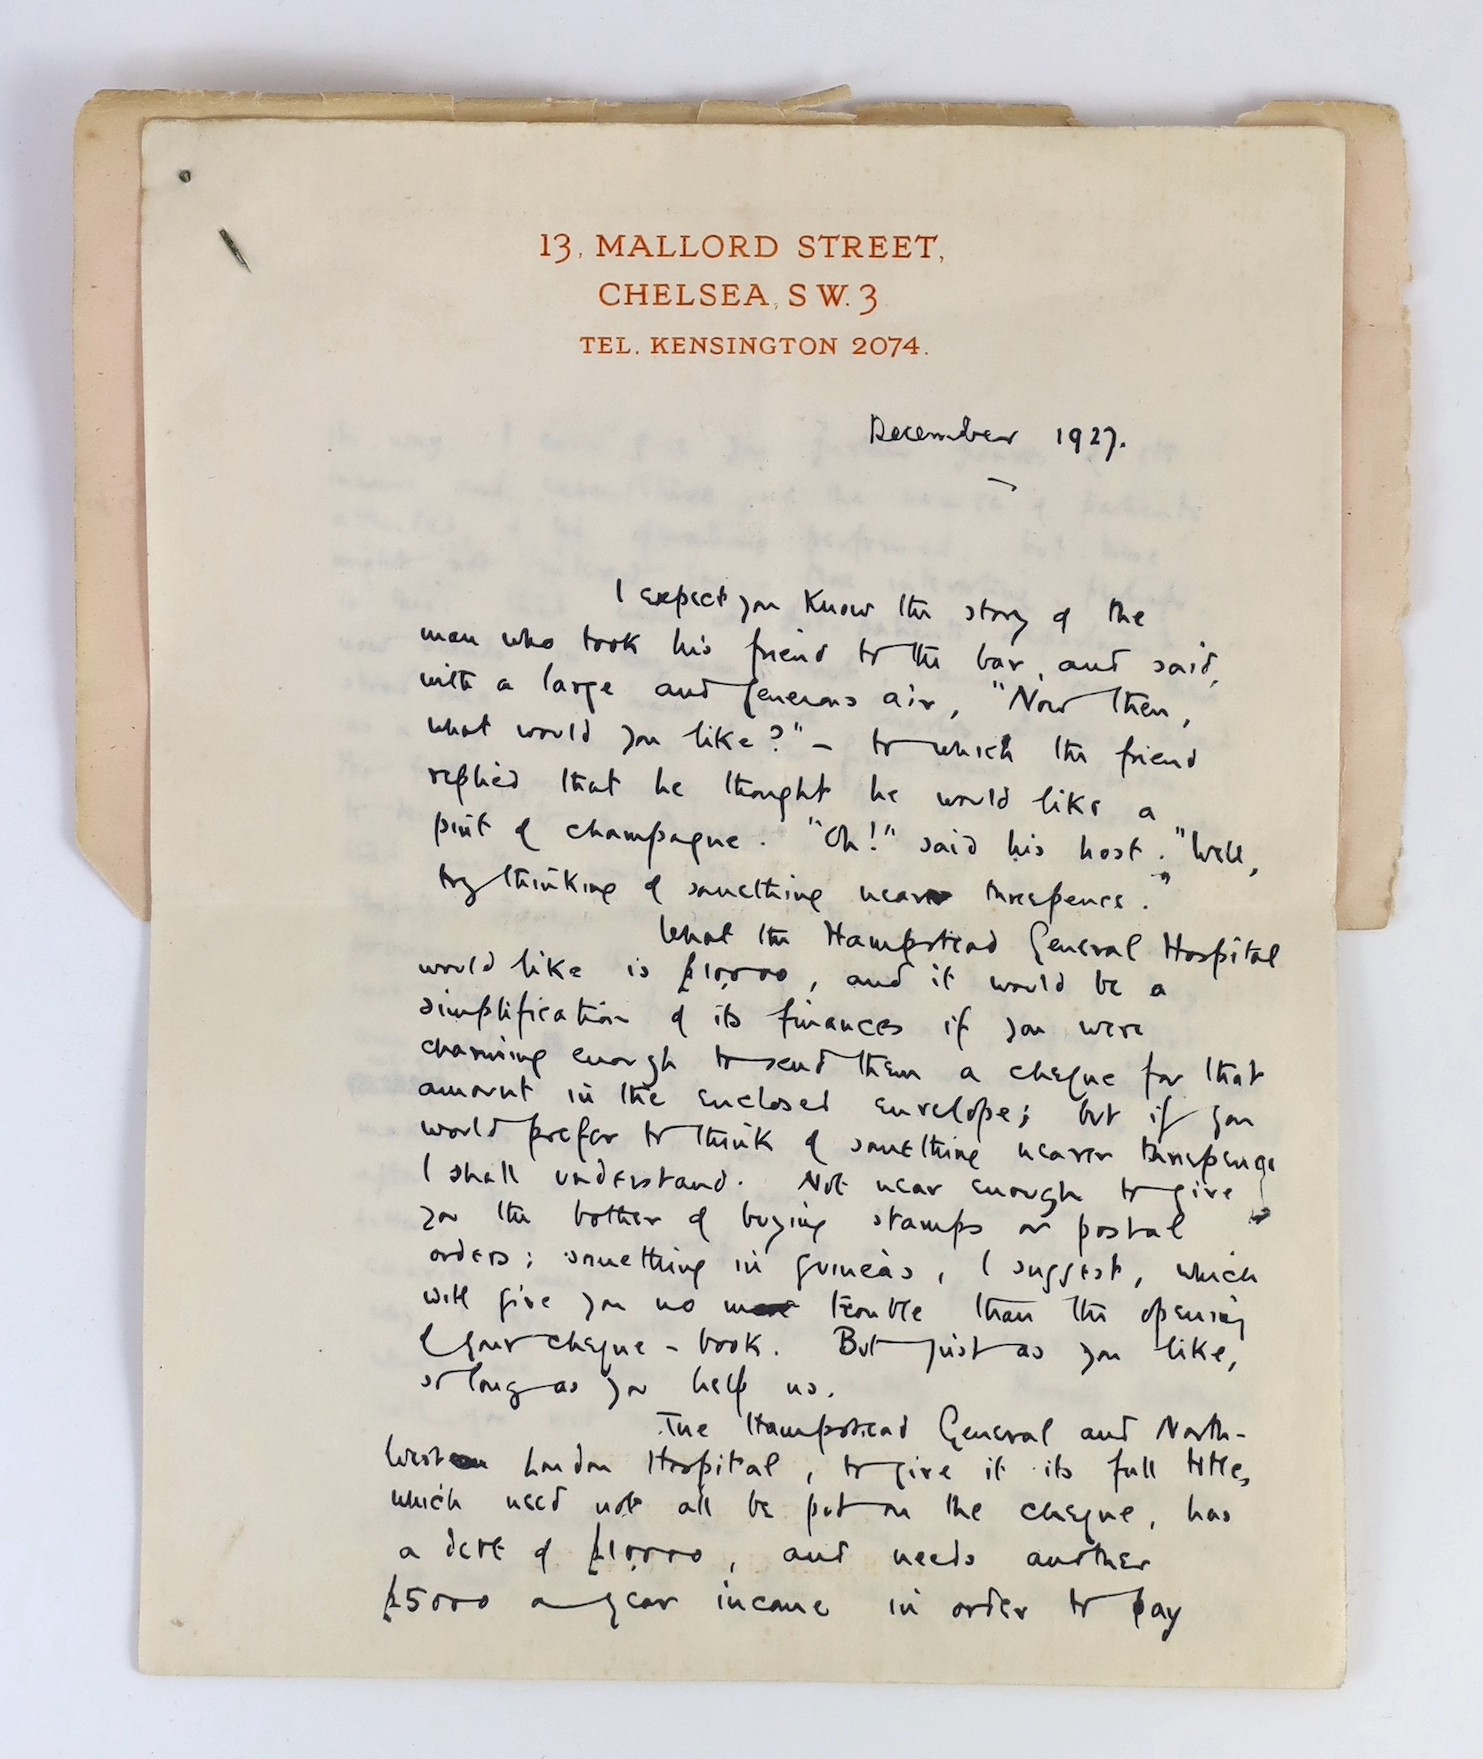 13, MALLORD STREET,
CHELSEA, S.W.3
TEL. KENSINGTON 2074.
December 1927.
I expect you know the story of the
man who took his friend to the bar, and said,
with a large and generous air, "Now then,
what would you like?" – to which the friend
replied that he thought he would like a
pint of champagne. "Oh!" said his host. "Well,
try thinking of something nearer threepence."
What the Hampstead General Hospital
would like is £10,000, and it would be a
simplification of its finances if you were
charming enough to send them a cheque for that
amount in the enclosed envelope; but if you
would prefer to think of something nearer threepence
I shall understand. Not near enough to give
you the bother of buying stamps or postal
orders; something in guineas, I suggest, which
will give you no more trouble than the opening
of your cheque-book. But just as you like,
so long as you help us.
The Hampstead General and North-
Western London Hospital, to give it its full title,
which need not all be put on the cheque, has
a debt of £10,000, and needs another
£5000 a year income in order to pay